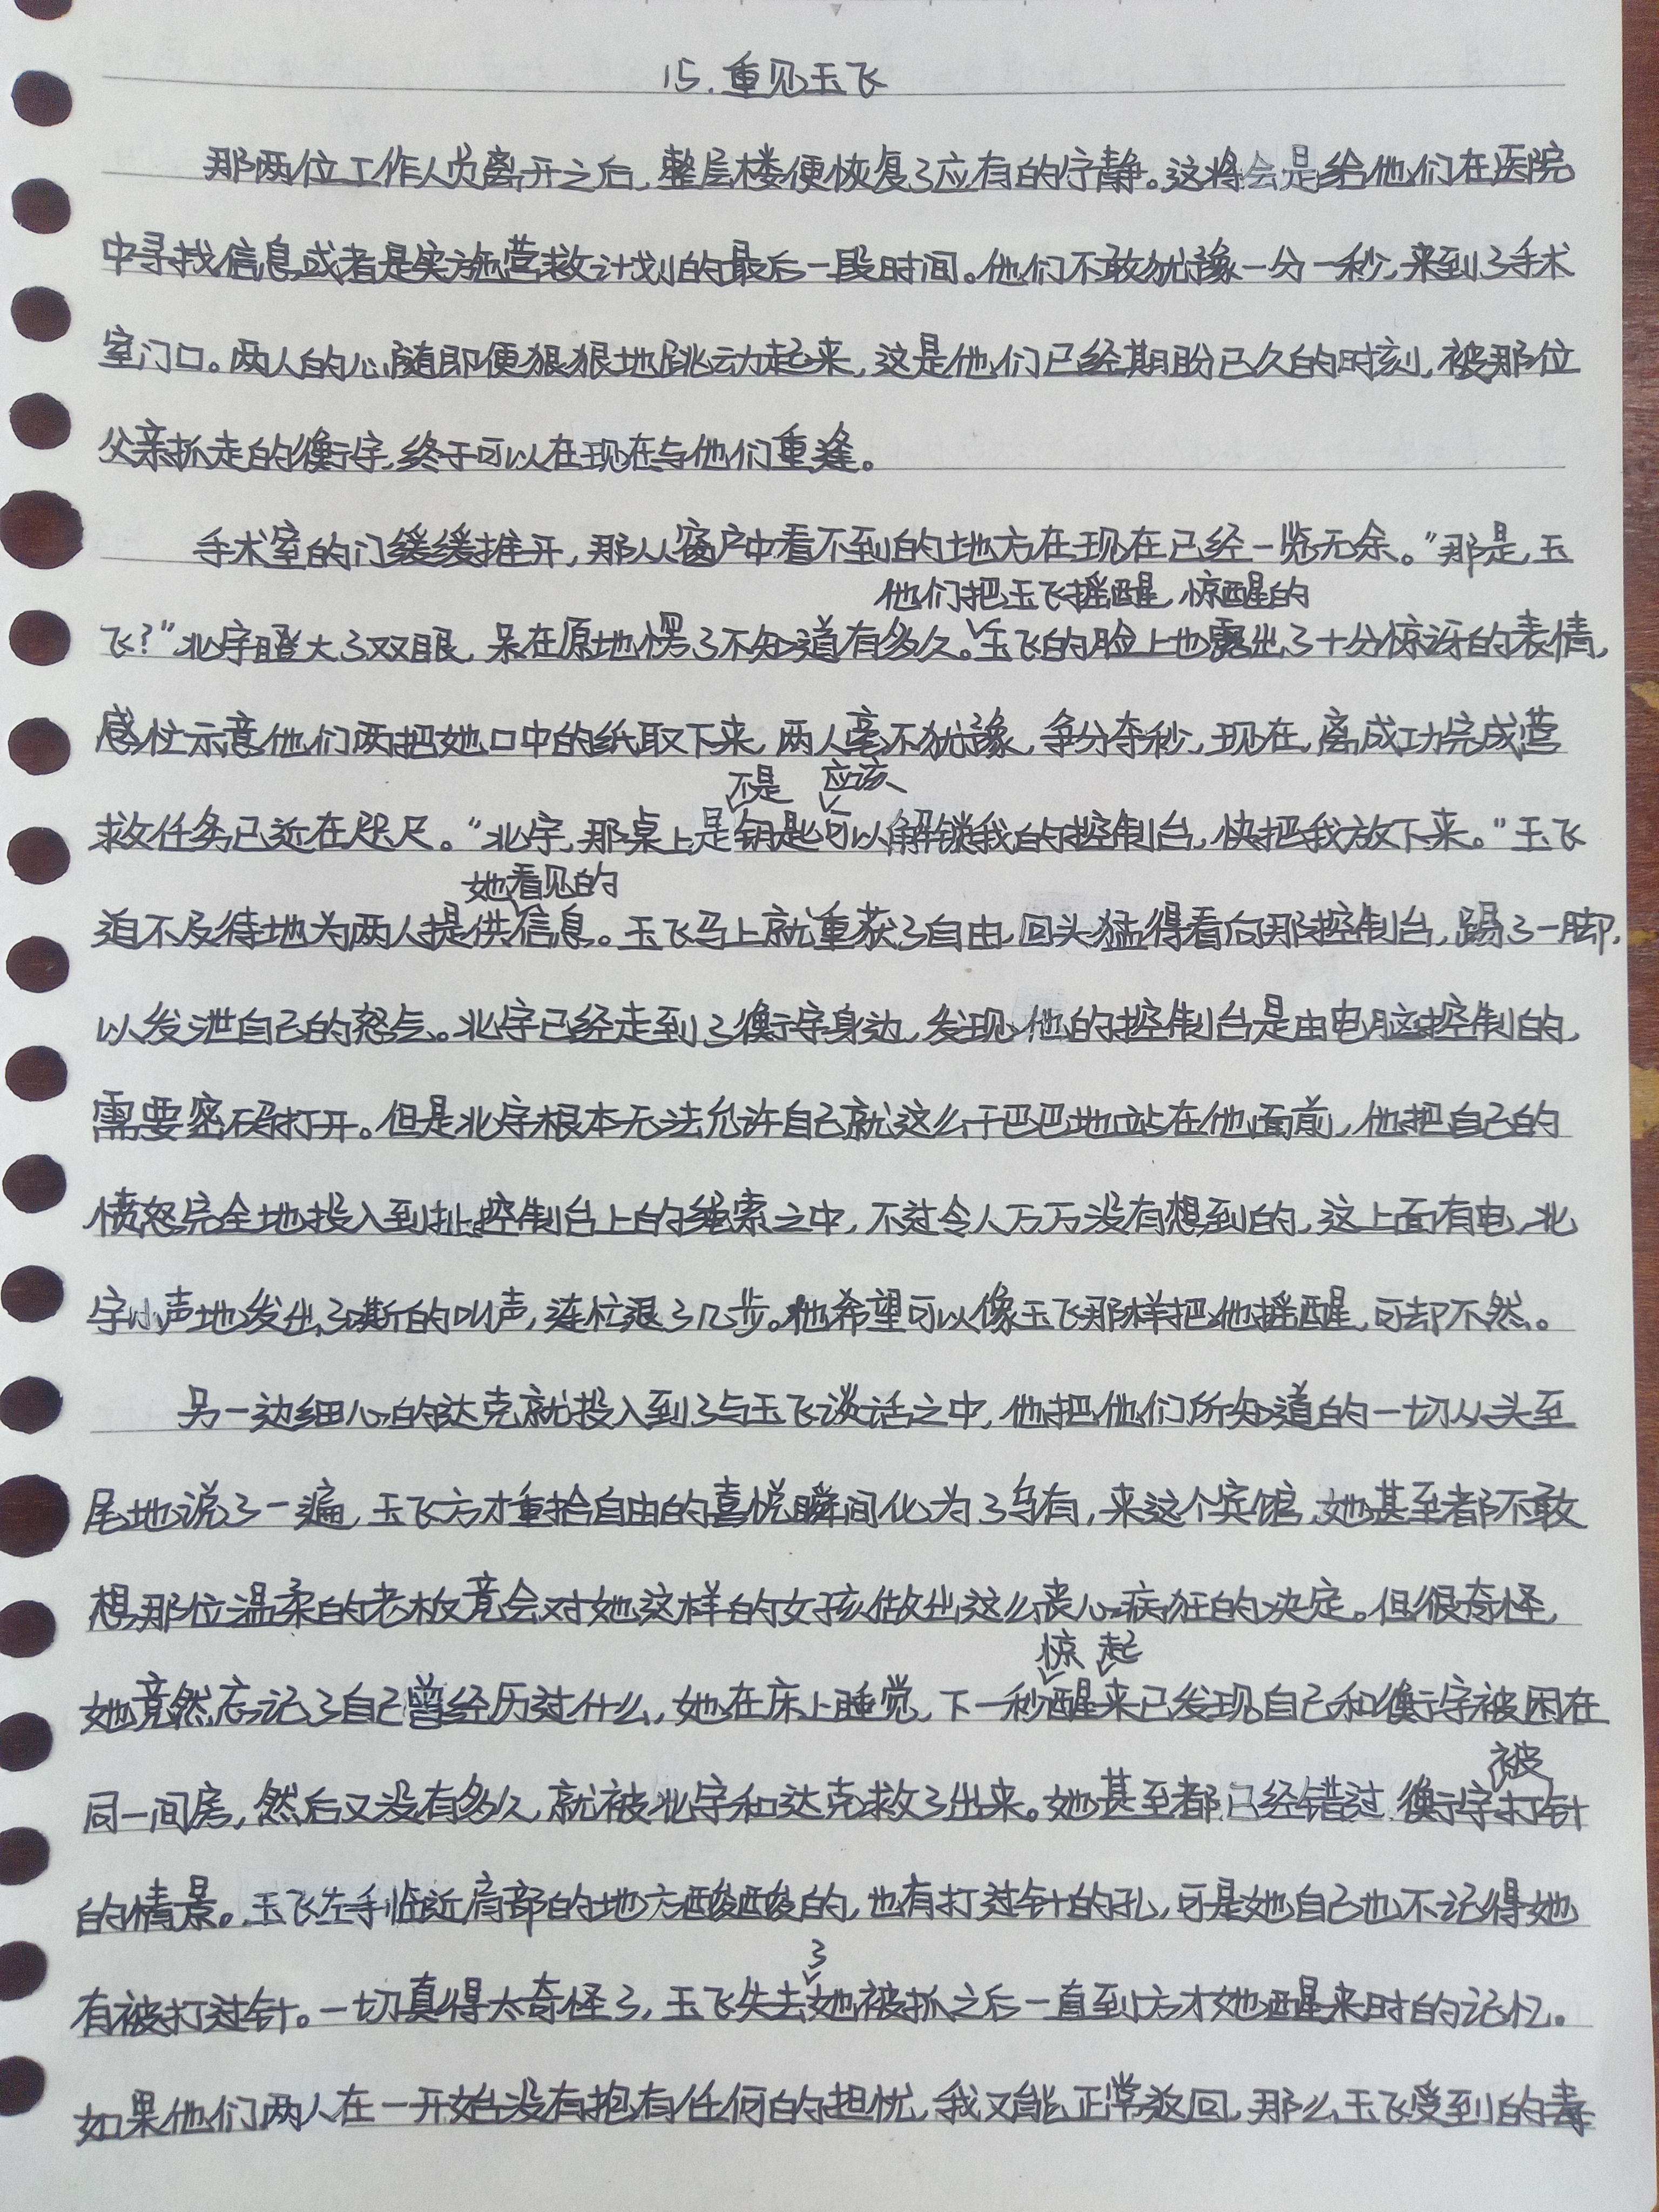 15.重见玉飞
那两位工作人员离开之后,整层楼便恢复了应有的宁静。这将会是给他们在医院
中寻找信息或者是实施营救计划的最后一段时间。他们不敢犹豫一分一秒,来到了手术
室门口。两人的心随即便狠狠地跳动起来,这是他们已经期盼已久的时刻,被那位
父亲抓走的衡宇,终于可以在现在与他们重逢。
手术室的门缓缓推开,那从窗户中看不到的地方在现在已经一览无余。"那是,玉
他们把玉飞摇醒,惊醒的
飞?"北宇瞪大了双眼,呆在原地愣了不知道有多久。玉飞的脸上也露出了十分惊讶的表情,
急忙示意他们两把她口中的纸取下来,两人毫不犹豫,争分夺秒,现在,离成功完成营
不是 应该
救任务已近在咫尺。"北宇,那桌上是钥匙可以解锁我的控制台,快把我放下来。"玉飞
她看见的
迫不及待地为两人提供信息。玉飞马上就重获了自由,回头猛得看向那控制台,踢了一脚,
以发泄自己的怒气。北宇已经走到了衡宇身边,发现,他的控制台是由电脑控制的,
需要密码打开。但是北宇根本无法允许自己就这么干巴巴地站在他面前,他把自己的
愤怒完全地投入到扯控制台上的绳索之中,不过令人万万没有想到的,这上面有电,北
宇小声地发出了嘶的叫声,连忙退了几步。他希望可以像玉飞那样把他摇醒,可却不然。
另一边细心的达克就投入到了与玉飞谈话之中,他把他们所知道的一切从头至
尾地说了一遍,玉飞方才重拾自由的喜悦瞬间化为了乌有,来这个宾馆,她甚至都不敢
想那位温柔的老板竟会对她这样的女孩做出这么丧心病狂的决定。但很奇怪,
惊 起
她竟然忘记了自己曾经历过什么,她在床上睡觉,下一秒醒来已发现自己和衡宇被困在
被
同一间房,然后又没有多久,就被北宇和达克救了出来。她甚至都已经错过衡宇打针
的情景。玉飞左手临近肩部的地方酸酸的,也有打过针的孔,可是她自己也不记得她
了
有被打过针。一切真得太奇怪了,玉飞失去她被抓之后一直到方才她醒来时的记忆。
如果他们两人在一开始没有抱有任何的担忧,我又能正常返回,那么玉飞受到的毒